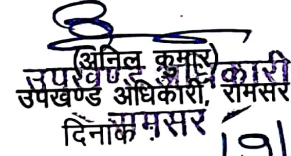 (अनिल कुमार)
उपखण्ड अधिकारी
उपखण्ड अधिकारी, रामसर
रामसर
दिनांक